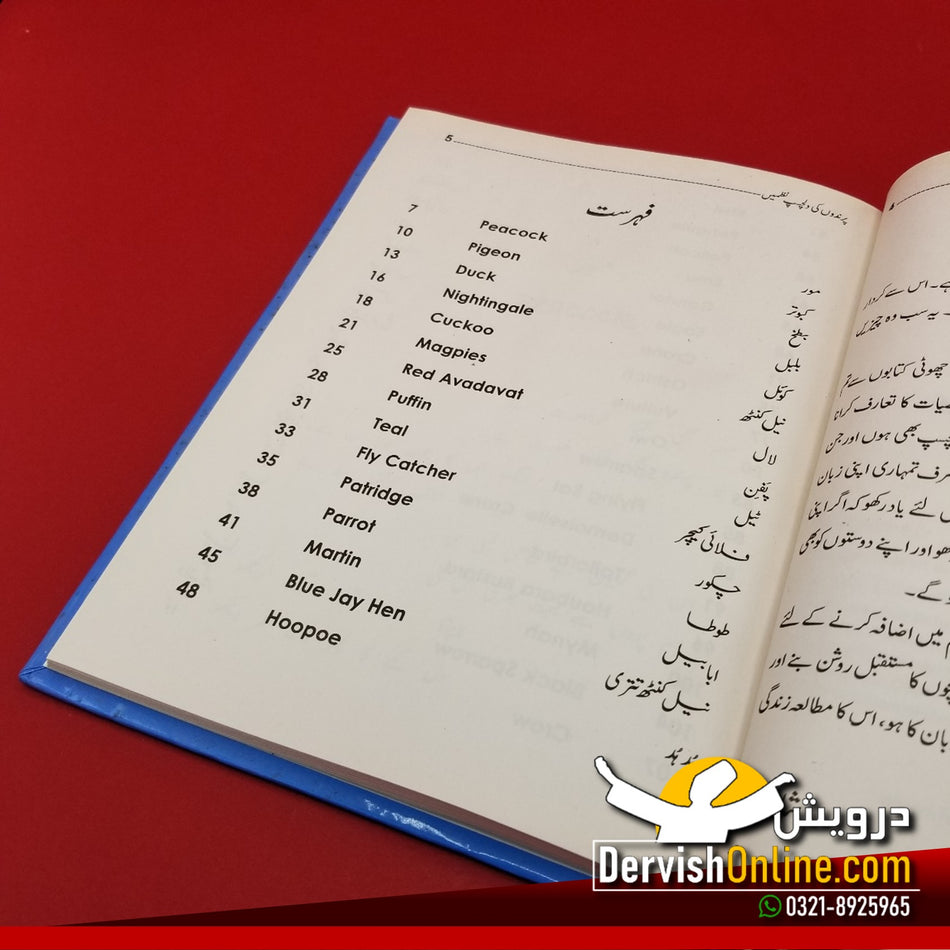 5 پرندوں کی دلچسپ نظمیں
فہرست
7 Peacock مور
10 Pigeon کبوتر
13 Duck بطخ
16 Nightingale بلبل
18 Cuckoo کوئل
21 Magpies نیل کنٹھ
25 Red Avadavat لال
28 Puffin پفن
31 Teal ٹیل
33 Fly Catcher فلائی کیچر
35 Patridge چکور
38 Parrot طوطا
41 Martin ابابیل
45 Blue Jay Hen نیل کنٹھ تتری
48 Hoopoe ہُد ہُد
ہے۔ اس سے کردار
یہ سب وہ چیزیں
چھوٹی کتابوں سے تم
کا تعارف کرانا
بھی ہوں اور جن
تمہاری اپنی زبان
لئے یاد رکھو کہ اگر اپنی
اور اپنے دوستوں کو بھی
گے۔
میں اضافہ کرنے کے لئے
کا مستقبل روشن بنے اور
کا ہو، اس کا مطالعہ زندگی
درویش
DervishOnline.com
0321-8925965